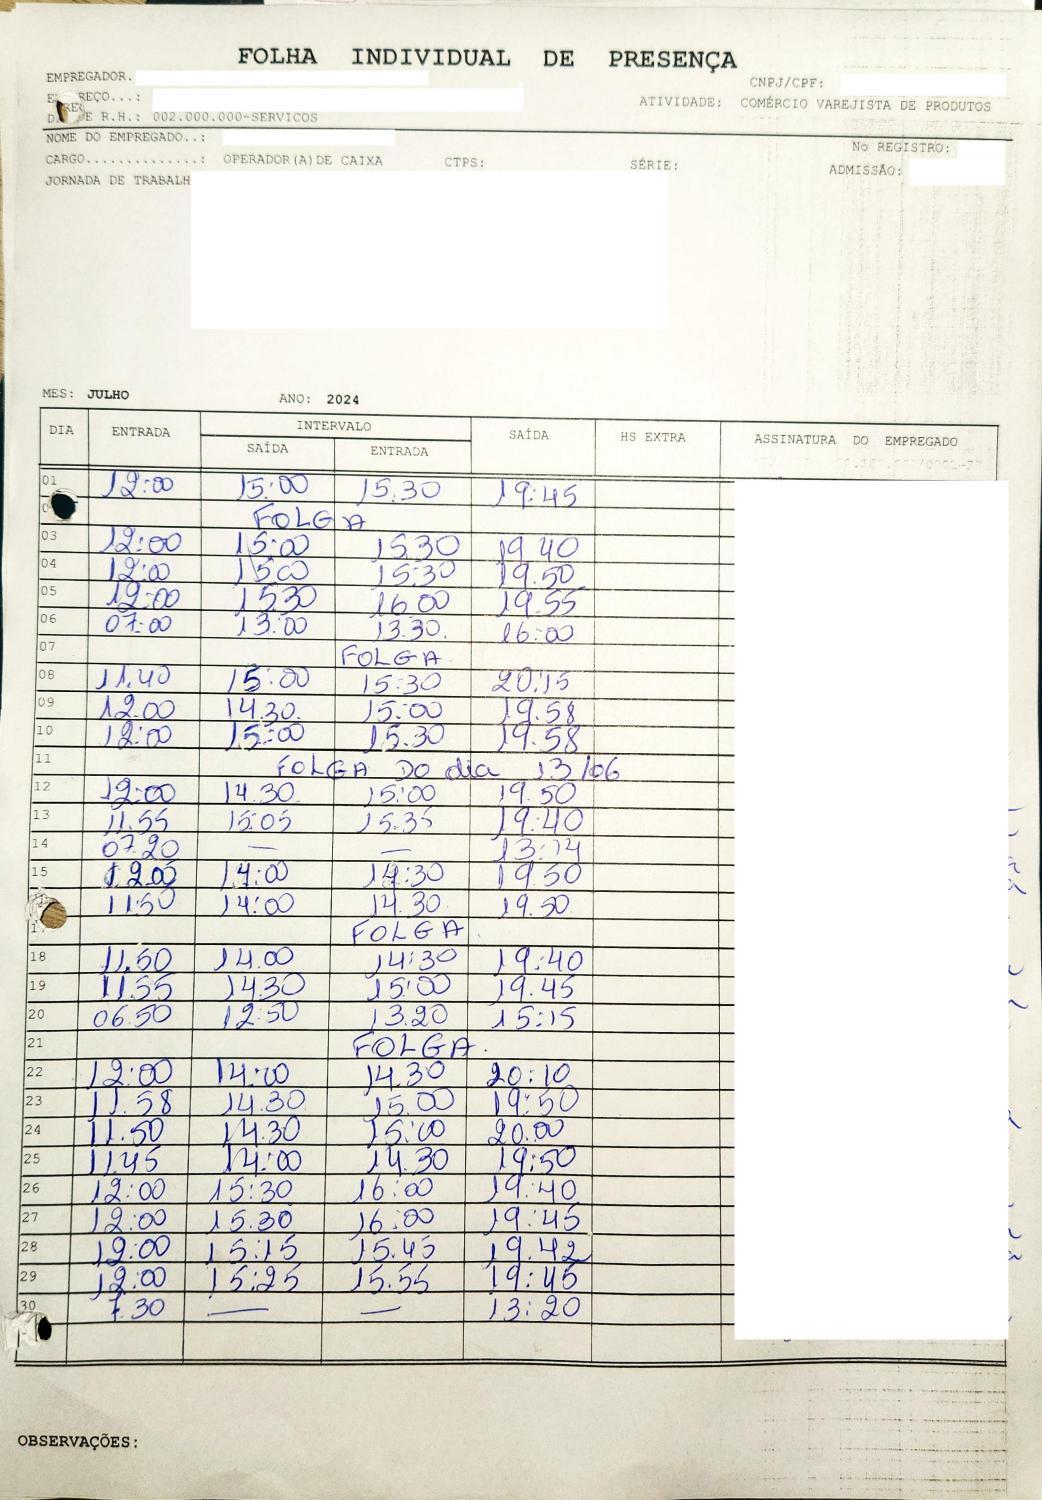 FOLHA INDIVIDUAL DE PRESENÇA
EMPREGADOR. CNPJ/CPF:
REÇO...: ATIVIDADE: COMÉRCIO VAREJISTA DE PRODUTOS
E R.H.: 002.000.000-SERVICOS
NOME DO EMPREGADO..: No REGISTRO:
CARGO.............: OPERADOR(A)DE CAIXA CTPS: SÉRIE: ADMISSÃO:
JORNADA DE TRABALH
MES: JULHO ANO: 2024
DIA ENTRADA INTERVALO SAÍDA HS EXTRA ASSINATURA DO EMPREGADO
SAÍDA ENTRADA
01 12:00 15:00 15.30 19:45
FOLGA
03 12:00 15:00 15:30 19.40
04 12:00 1500 15:30 19.50
05 12:00 1530 16.00 19.55
06 07:00 13:00 13.30. 16:00
07 FOLGA.
08 11.40 15:00 15:30 20:15
09 12.00 14.30. 15:00 19.58
10 12:00 15:00 15.30 19.58
11 FOLGA DO dia 13/06
12 12:00 14.30 15:00 19.50
13 11.55 15:05 15:35 19:40
14 07.20 — — 13:14
15 12.00 14:00 14:30 19.50
11:50 14:00 14.30. 19.50
17 FOLGA.
18 11.50 14.00 14:30 19:40
19 11.55 14.30 15:00 19.45
20 06.50 12:50 13.20 15:15
21 FOLGA.
22 12:00 14:00 14.30 20:10
23 11.58 14.30 15.00 19:50
24 11.50 14.30 15:00 20.00
25 11.45 14:00 14.30 19:50
26 12:00 15:30 16:00 19:40
27 12:00 15.30 16:00 19:45
28 12:00 15:15 15.45 19.42
29 12:00 15:25 15.55 19:45
30 7.30 — — 13:20
OBSERVAÇÕES: